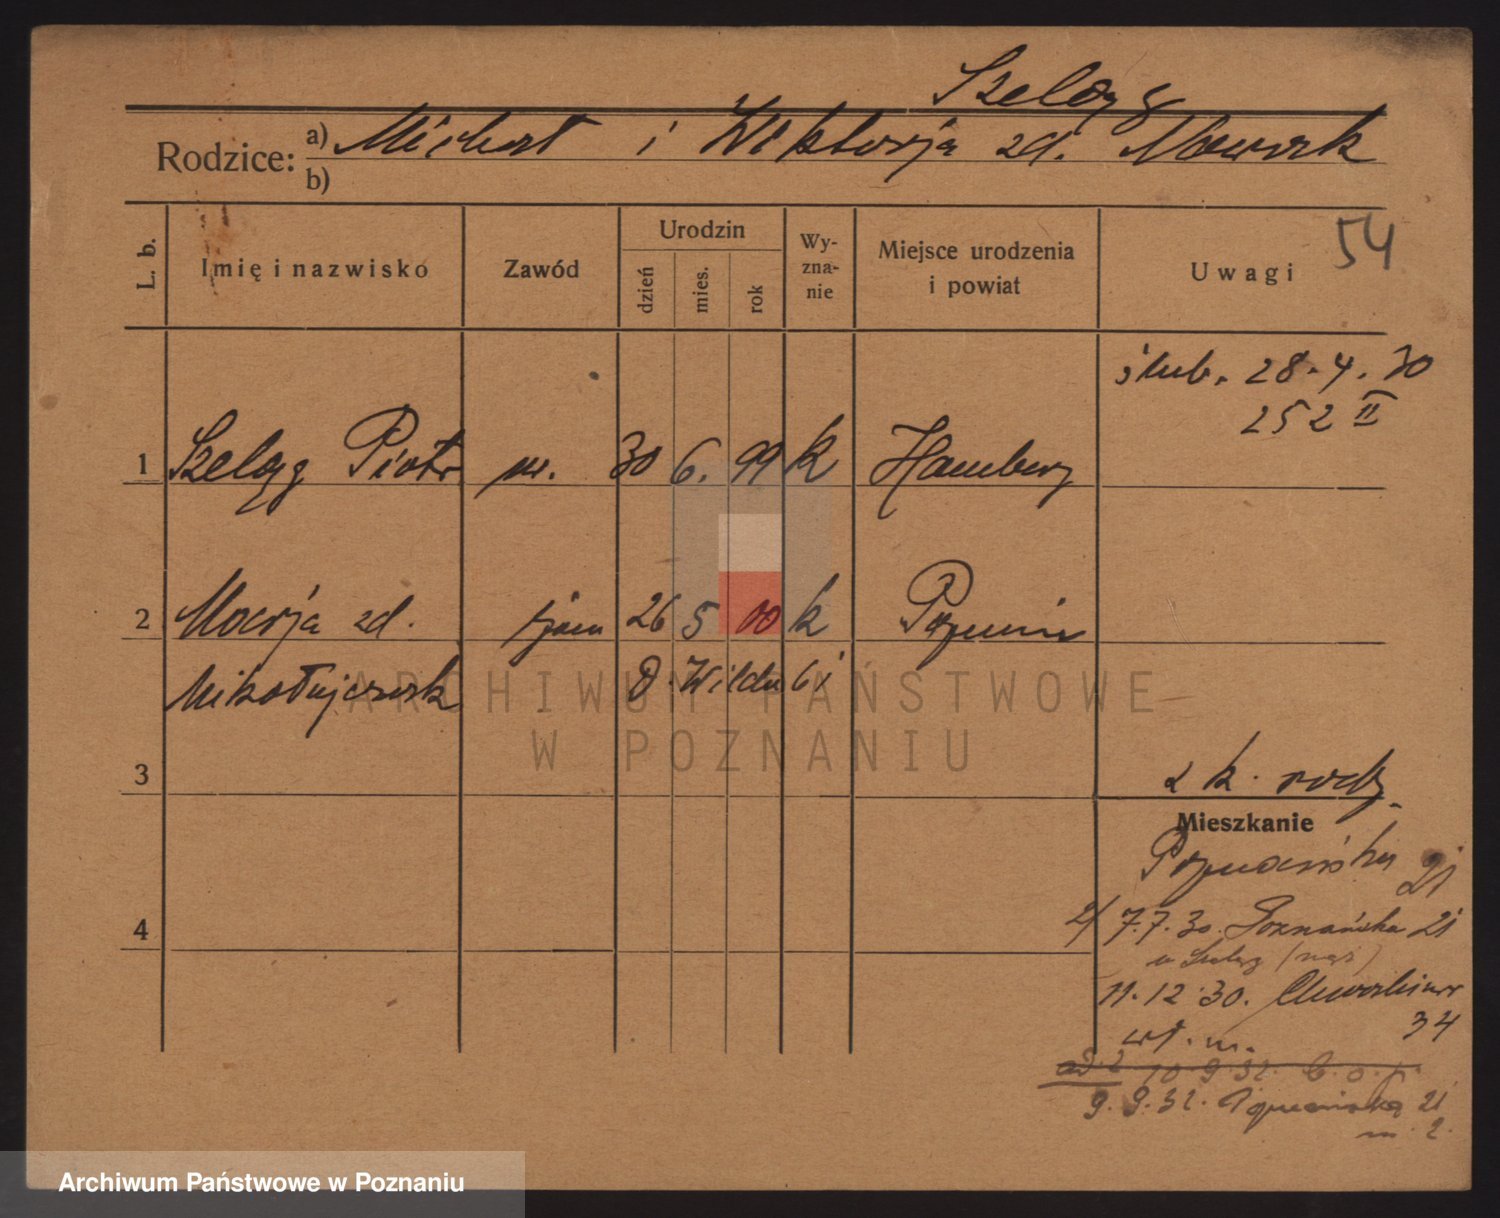 Szeląg
Rodzice: a) Michał i Wiktorja zd. Nowak
b)
L. b. Imię i nazwisko Zawód Urodzin dzień mies. rok Wy-zna-nie Miejsce urodzenia i powiat Uwagi 54
ślub. 28.4.30
252 II
1 Szeląg Piotr 30 6. 99 k Hamburg
2 Marja zd. 26 5 00 k Poznań
Mikołajczak D. Wilda 61
3
z k. rodz.
Mieszkanie
Poznańska 21
4
2/ 7.7.30. Poznańska 21
u Szeląg (mąż)
11.12.30.
34
wł. m.
ad. 2 10.9.32.
9.9.32. Poznańska 21
m. 2.
ARCHIWUM PAŃSTWOWE
W POZNANIU
Archiwum Państwowe w Poznaniu